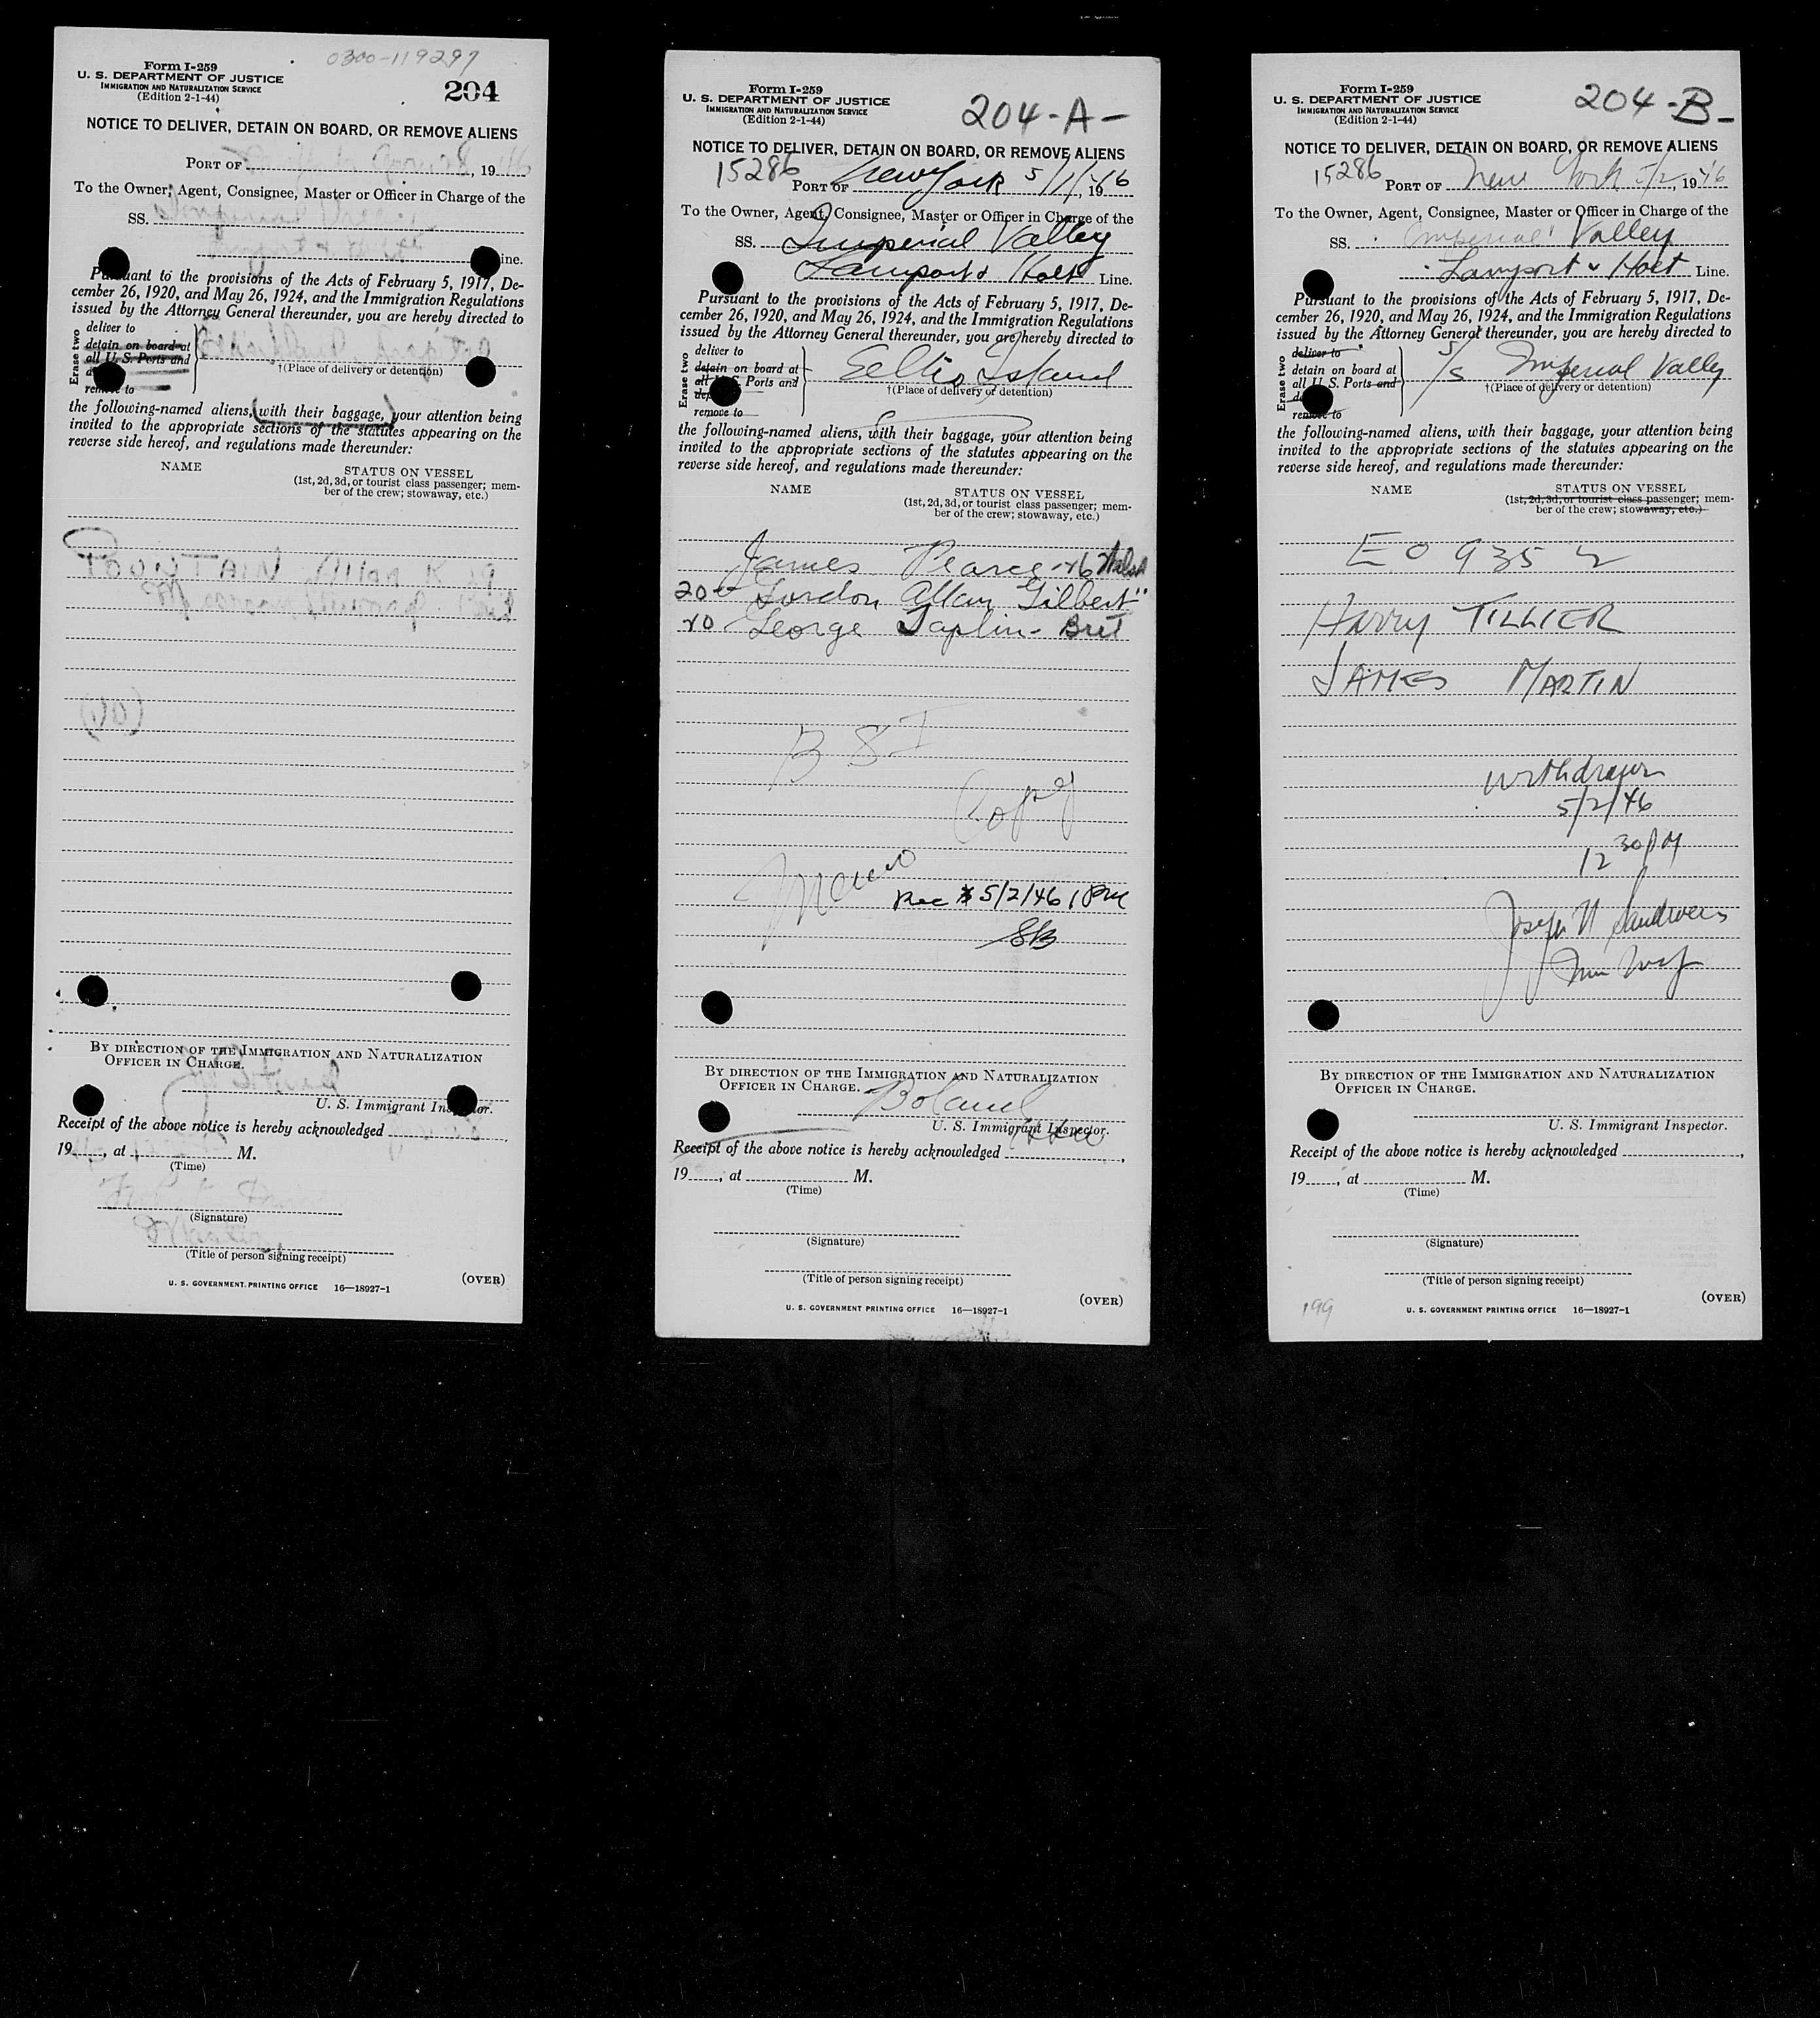 0300-119297
Form I-259
U. S. DEPARTMENT OF JUSTICE
IMMIGRATION AND NATURALIZATION SERVICE
(Edition 2-1-44)
204
NOTICE TO DELIVER, DETAIN ON BOARD, OR REMOVE ALIENS
PORT OF , 1946
To the Owner, Agent, Consignee, Master or Officer in Charge of the
SS. Imperial Valley
Lamport & Holt Line.
Pursuant to the provisions of the Acts of February 5, 1917, De-
cember 26, 1920, and May 26, 1924, and the Immigration Regulations
issued by the Attorney General thereunder, you are hereby directed to
Erase two
deliver to
detain on board at
all U. S. Ports and
remove to
†(Place of delivery or detention)
the following-named aliens, (with their baggage,) your attention being
invited to the appropriate sections of the statutes appearing on the
reverse side hereof, and regulations made thereunder:
NAME
STATUS ON VESSEL
(1st, 2d, 3d, or tourist class passenger; mem-
ber of the crew; stowaway, etc.)
BY DIRECTION OF THE IMMIGRATION AND NATURALIZATION
OFFICER IN CHARGE.
U. S. Immigrant Inspector.
Receipt of the above notice is hereby acknowledged
19 , at M.
(Time)
(Signature)
(Title of person signing receipt)
U. S. GOVERNMENT PRINTING OFFICE 16—18927-1
(OVER)
Form I-259
U. S. DEPARTMENT OF JUSTICE
IMMIGRATION AND NATURALIZATION SERVICE
(Edition 2-1-44)
204-A-
NOTICE TO DELIVER, DETAIN ON BOARD, OR REMOVE ALIENS
15286
PORT OF New York 5/1/, 1946
To the Owner, Agent, Consignee, Master or Officer in Charge of the
SS. Imperial Valley
Lamport & Holt Line.
Pursuant to the provisions of the Acts of February 5, 1917, De-
cember 26, 1920, and May 26, 1924, and the Immigration Regulations
issued by the Attorney General thereunder, you are hereby directed to
Erase two
deliver to
detain on board at
all U. S. Ports and
remove to
Ellis Island
†(Place of delivery or detention)
the following-named aliens, with their baggage, your attention being
invited to the appropriate sections of the statutes appearing on the
reverse side hereof, and regulations made thereunder:
NAME
STATUS ON VESSEL
(1st, 2d, 3d, or tourist class passenger; mem-
ber of the crew; stowaway, etc.)
James Pearce
20 Gordon Allan Gilbert "
20 George Taplin - Brit
B S I
Copy
Rec 5/2/46 1 PM
SB
BY DIRECTION OF THE IMMIGRATION AND NATURALIZATION
OFFICER IN CHARGE.
Boland
U. S. Immigrant Inspector.
Receipt of the above notice is hereby acknowledged
19 , at M.
(Time)
(Signature)
(Title of person signing receipt)
U. S. GOVERNMENT PRINTING OFFICE 16—18927-1
(OVER)
Form I-259
U. S. DEPARTMENT OF JUSTICE
IMMIGRATION AND NATURALIZATION SERVICE
(Edition 2-1-44)
204-B-
NOTICE TO DELIVER, DETAIN ON BOARD, OR REMOVE ALIENS
15286
PORT OF New York 5/2, 1946
To the Owner, Agent, Consignee, Master or Officer in Charge of the
SS. Imperial Valley
Lamport & Holt Line.
Pursuant to the provisions of the Acts of February 5, 1917, De-
cember 26, 1920, and May 26, 1924, and the Immigration Regulations
issued by the Attorney General thereunder, you are hereby directed to
Erase two
deliver to
detain on board at
all U. S. Ports and
remove to
S/S Imperial Valley
†(Place of delivery or detention)
the following-named aliens, with their baggage, your attention being
invited to the appropriate sections of the statutes appearing on the
reverse side hereof, and regulations made thereunder:
NAME
STATUS ON VESSEL
(1st, 2d, 3d, or tourist class passenger; mem-
ber of the crew; stowaway, etc.)
EO 9352
Harry TILLIER
JAMES MARTIN
withdrawn
5/2/46
12 30 PM
BY DIRECTION OF THE IMMIGRATION AND NATURALIZATION
OFFICER IN CHARGE.
U. S. Immigrant Inspector.
Receipt of the above notice is hereby acknowledged
19 , at M.
(Time)
(Signature)
(Title of person signing receipt)
199
U. S. GOVERNMENT PRINTING OFFICE 16—18927-1
(OVER)